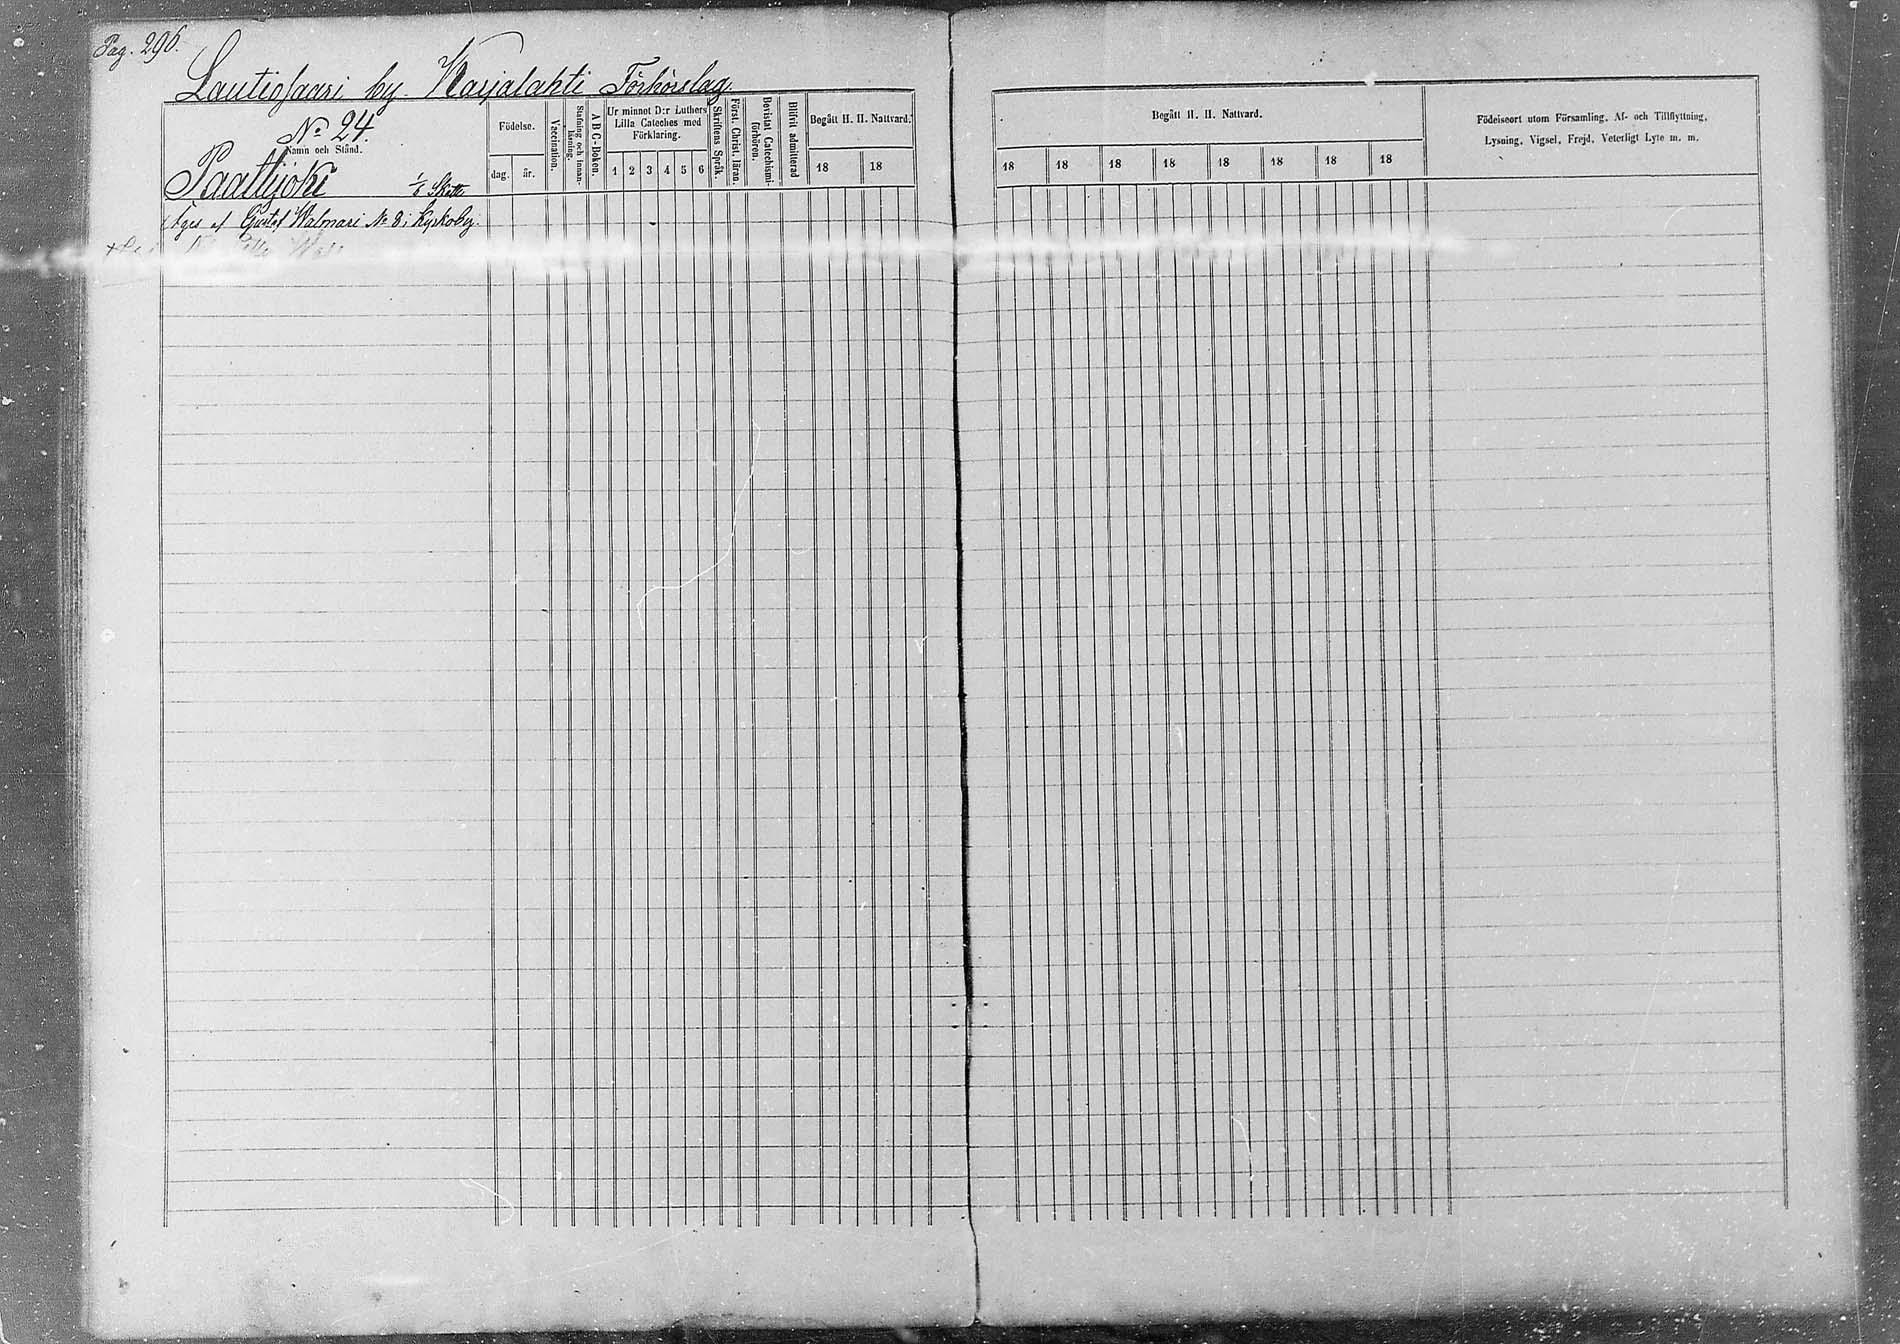 Pag. 296.
Lautiosaari by. Karjalahti Förhörslag.
No 24.
Namn och Stånd.
Paattijoki
Äges af Gustaf Walmari No 8 i Kyrkoby.
Födelse.
dag. år.
Vaccination.
Stafning och Innan-
läsning.
ABC-Boken.
Ur minnet D:r Luthers
Lilla Cateches med
Förklaring.
1 2 3 4 5 6
Skriftens Språk.
Först. Christ. läran.
Bevistat Catechismi-
förhören.
Blifvit admitterad
Begått H. H. Nattvard.
18 18
Begått H. H. Nattvard.
18 18 18 18 18 18 18 18
Födelseort utom Församling, Af- och Tillflyttning,
Lysning, Vigsel, Frejd, Veterligt Lyte m. m.